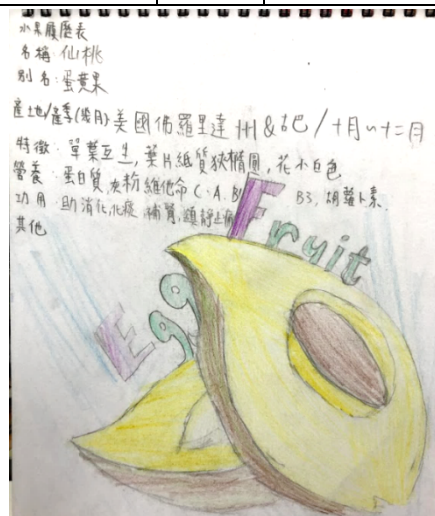 水果履歷表
名稱:仙桃
別名:蛋黃果
產地/產季(幾月)美國佛羅里達州&古巴/十月~十二月
特徵:單葉互生,葉片紙質狹橢圓,花小白色
營養:蛋白質,灰粉,維他命C、A、B B3,胡蘿蔔素.
功用:助消化,化痰,補腎,鎮靜止痛
其他
Egg
Fruit